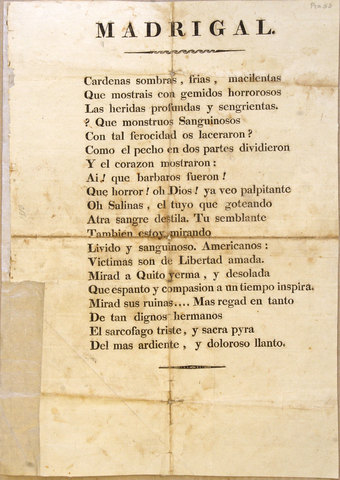 MADRIGAL.
Cardenas sombras, frias, macilentas
Que mostrais con gemidos horrorosos
Las heridas profundas y sengrientas.
? Que monstruos Sanguinosos
Con tal ferocidad os laceraron?
Como el pecho en dos partes dividieron
Y el corazon mostraron:
Ai! que barbaros fueron!
Que horror! oh Dios! ya veo palpitante
Oh Salinas, el tuyo que goteando
Atra sangre destila. Tu semblante
Tambien estoy mirando
Livido y sanguinoso. Americanos:
Victimas son de Libertad amada.
Mirad a Quito yerma, y desolada
Que espanto y compasion a un tiempo inspira.
Mirad sus ruinas.... Mas regad en tanto
De tan dignos hermanos
El sarcofago triste, y sacra pyra
Del mas ardiente, y doloroso llanto.